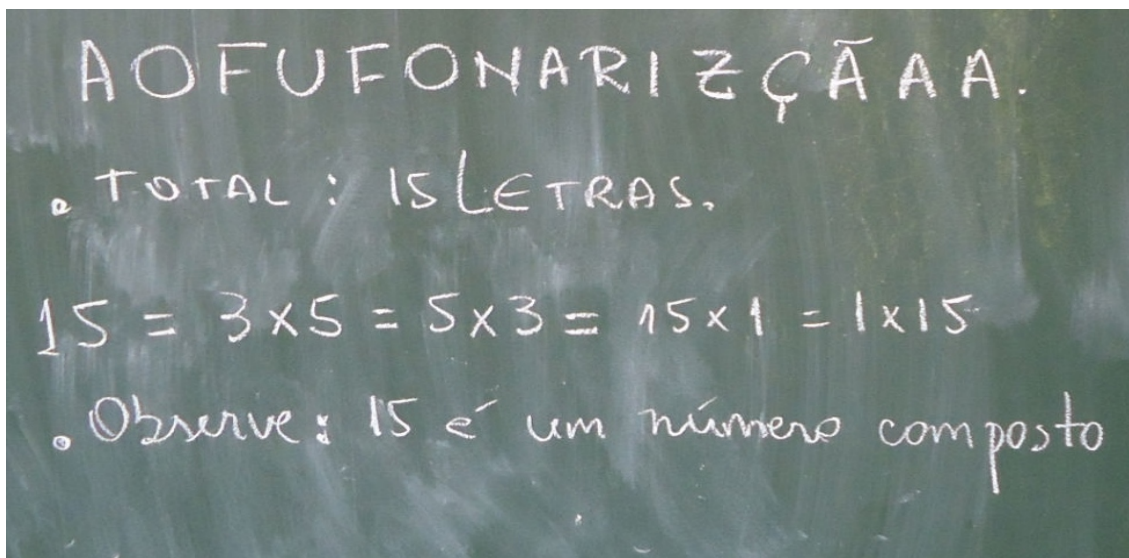 AOFUFONARIZÇÃAA.
. TOTAL : 15 LETRAS.
15 = 3x5 = 5x3 = 15x1 = 1x15
. Observe: 15 é um número composto